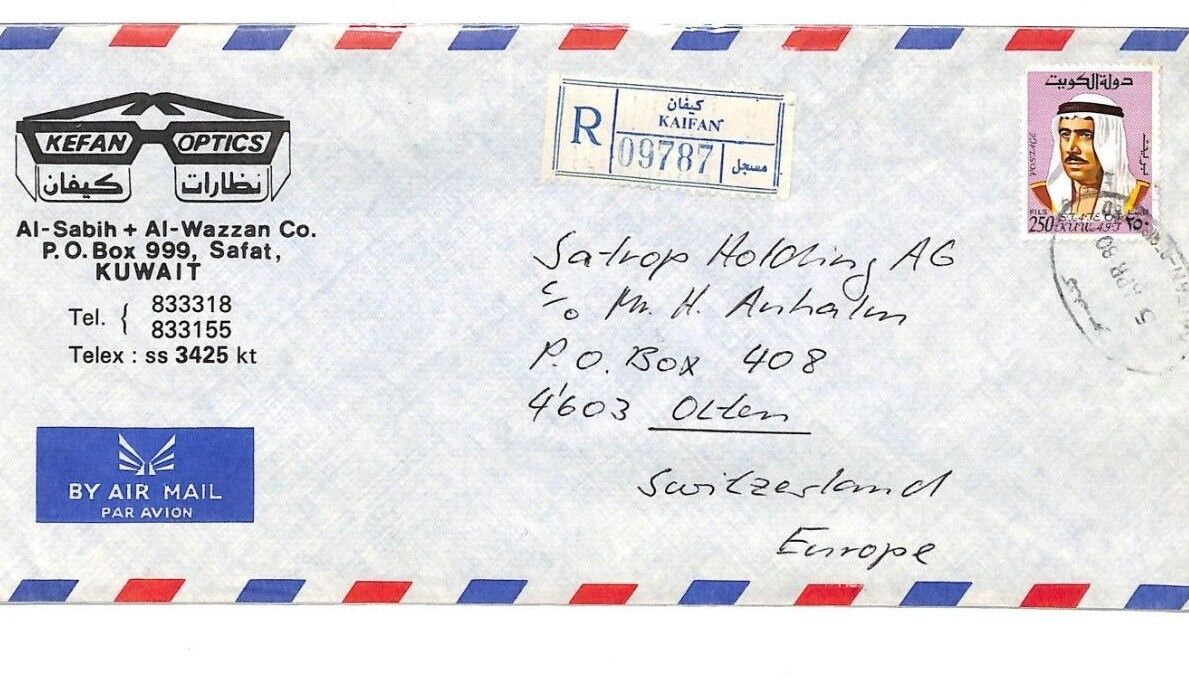 KEFAN OPTICS
كيفان نظارات
Al-Sabih + Al-Wazzan Co.
P.O. Box 999, Safat,
KUWAIT
Tel. { 833318
833155
Telex : ss 3425 kt
BY AIR MAIL
PAR AVION
R
كيفان
KAIFAN
09787
مسجل
دولة الكويت
POSTAGE
FILS
250
٢٥٠
5 APR 80
Satrop Holding AG
c/o Mr. H. Anhalm
P.O. Box 408
4603 Olten
Switzerland
Europe